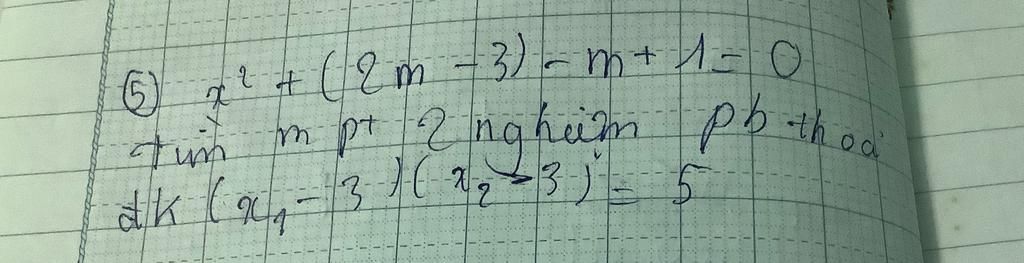 ⑤ x² + (2m - 3) - m + 1 = 0
tìm m pt 2 nghiệm pb thoả
đk (x₁ - 3)(x₂ - 3) = 5